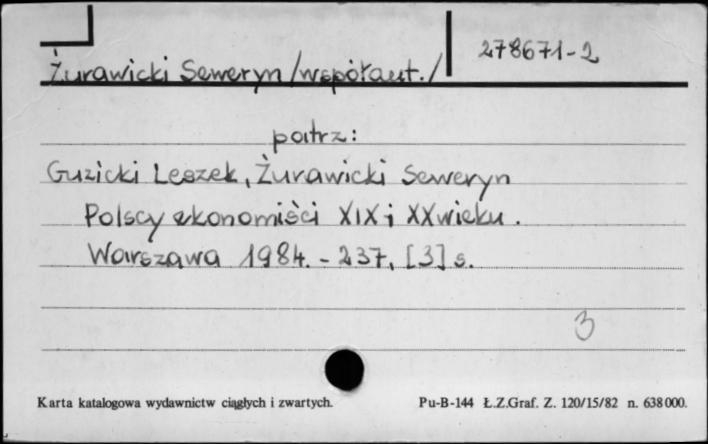 Żurawicki Seweryn /współaut./ 278671-2
patrz:
Guzicki Leszek, Żurawicki Seweryn
Polscy ekonomiści XIX i XX wieku.
Warszawa 1984. - 237, [3] s.
3
Karta katalogowa wydawnictw ciągłych i zwartych. Pu-B-144 Ł.Z.Graf. Z. 120/15/82 n. 638 000.